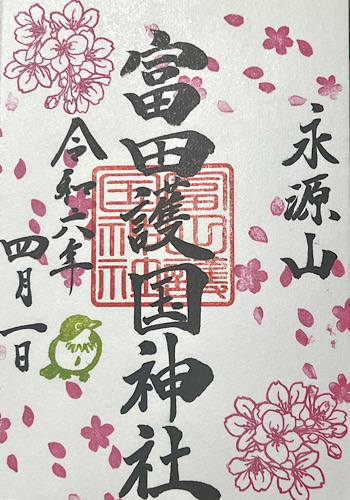 永源山
富田護国神社
令和六年
四月一日